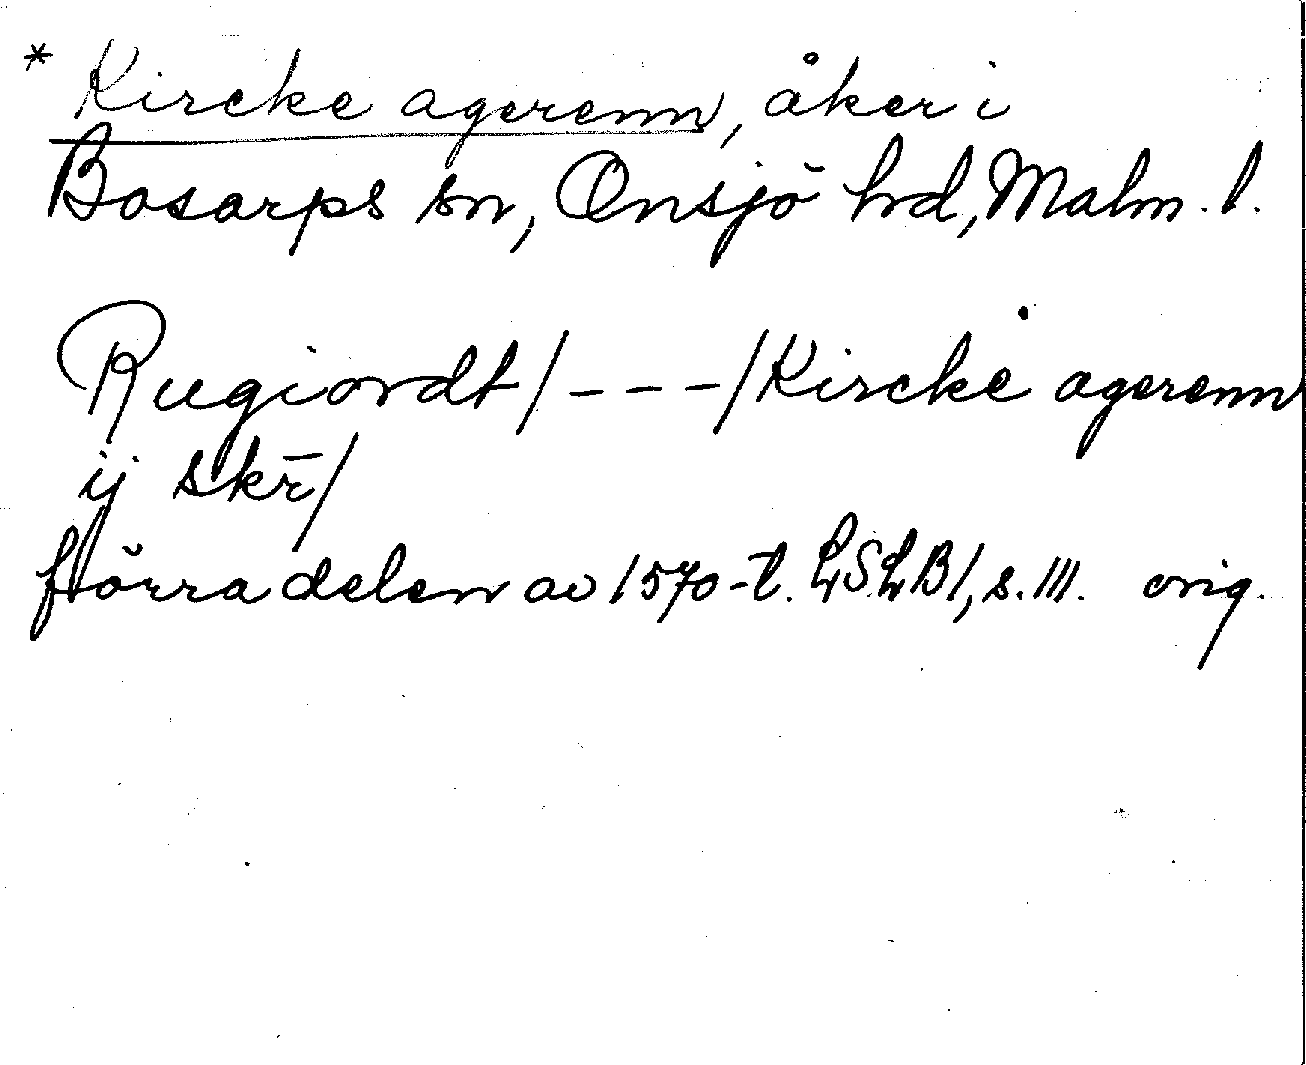 * Kircke agerenn, åker i
Bosarps sn, Onsjö hd, Malm. l.
Rugiordt/ - - - /Kircke agerenn
ij skr̄/
förra delen av 1570-t. LSLB1, s. 111. orig.